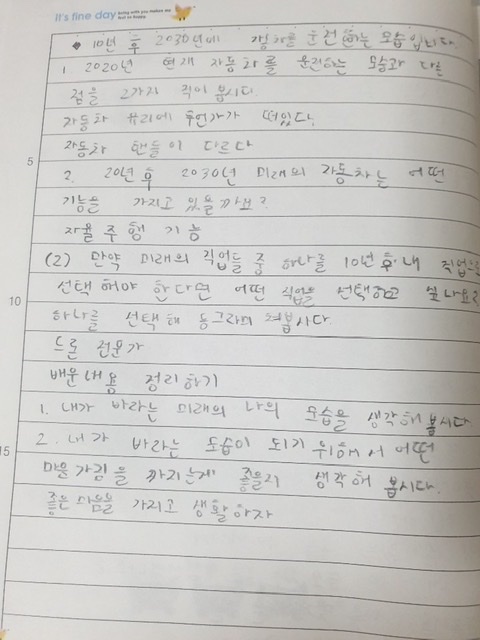 It's fine day
being with you makes me feel so happy
• 10년 후 2030년에 경차를 운전하는 모습입니다.
1. 2020년 현재 자동차를 운전하는 모습과 다른
점을 2가지 적어 봅시다.
자동차 유리에 뭔가가 떠있다.
자동차 핸들이 다르다
5
2. 20년 후 2030년 미래의 자동차는 어떤
기능을 가지고 있을까요?
자율 주행 기능
(2) 만약 미래의 직업들 중 하나를 10년 후 내 직업으로
10
선택해야 한다면 어떤 직업을 선택하고 싶나요?
하나를 선택해 동그라미 쳐봅시다.
드론 전문가
배운내용 정리하기
1. 내가 바라는 미래의 나의 모습을 생각해 봅시다
2. 내가 바라는 모습이 되기 위해서 어떤
15
마음가짐을 가지는게 좋을지 생각해 봅시다.
좋은 마음을 가지고 생활하자